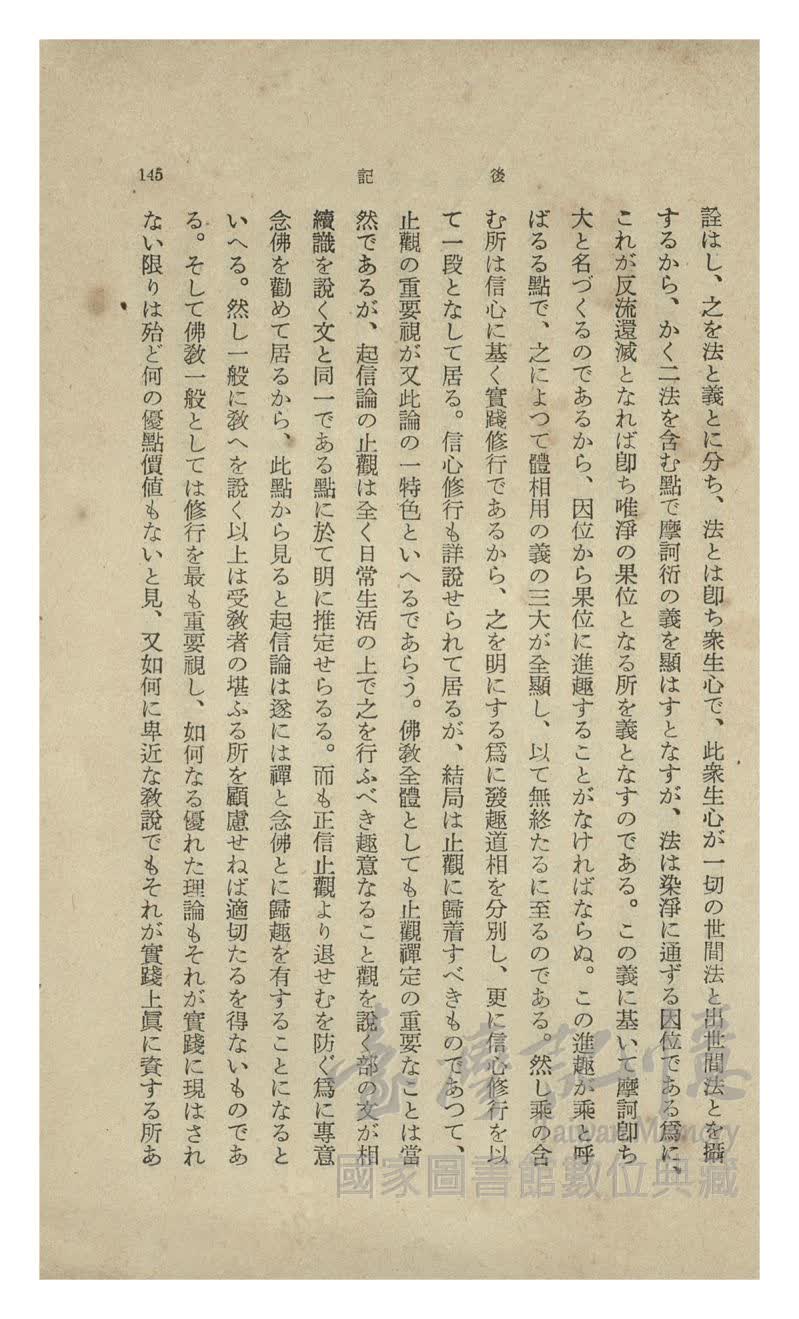 後記
145
詮はし、之を法と義とに分ち、法とは卽ち衆生心で、此衆生心が一切の世間法と出世間法とを攝
するから、かく二法を含む點で摩訶衍の義を顯はすとなすが、法は染淨に通ずる因位である爲に、
これが反流還滅となれば卽ち唯淨の果位となる所を義となすのである。この義に基いて摩訶卽ち
大と名づくるのであるから、因位から果位に進趣することがなければならぬ。この進趣が乘と呼
ばるる點で、之によつて體相用の義の三大が全顯し、以て無終たるに至るのである。然し乘の含
む所は信心に基く實踐修行であるから、之を明にする爲に發趣道相を分別し、更に信心修行を以
て一段となして居る。信心修行も詳說せられて居るが、結局は止觀に歸着すべきものであつて、
止觀の重要視が又此論の一特色といへるであらう。佛敎全體としても止觀禪定の重要なことは當
然であるが、起信論の止觀は全く日常生活の上で之を行ふべき趣意なること觀を說く部の文が相
續識を說く文と同一である點に於て明に推定せらるる。而も正信止觀より退せむを防ぐ爲に專意
念佛を勸めて居るから、此點から見ると起信論は遂には禪と念佛とに歸趣を有することになると
いへる。然し一般に敎へを說く以上は受敎者の堪ふる所を顧慮せねば適切たるを得ないものであ
る。そして佛敎一般としては修行を最も重要視し、如何なる優れた理論もそれが實踐に現はされ
ない限りは殆ど何の優點價値もないと見、又如何に卑近な敎說でもそれが實踐上眞に資する所あ
臺灣記憶
Taiwan Memory
國家圖書館數位典藏